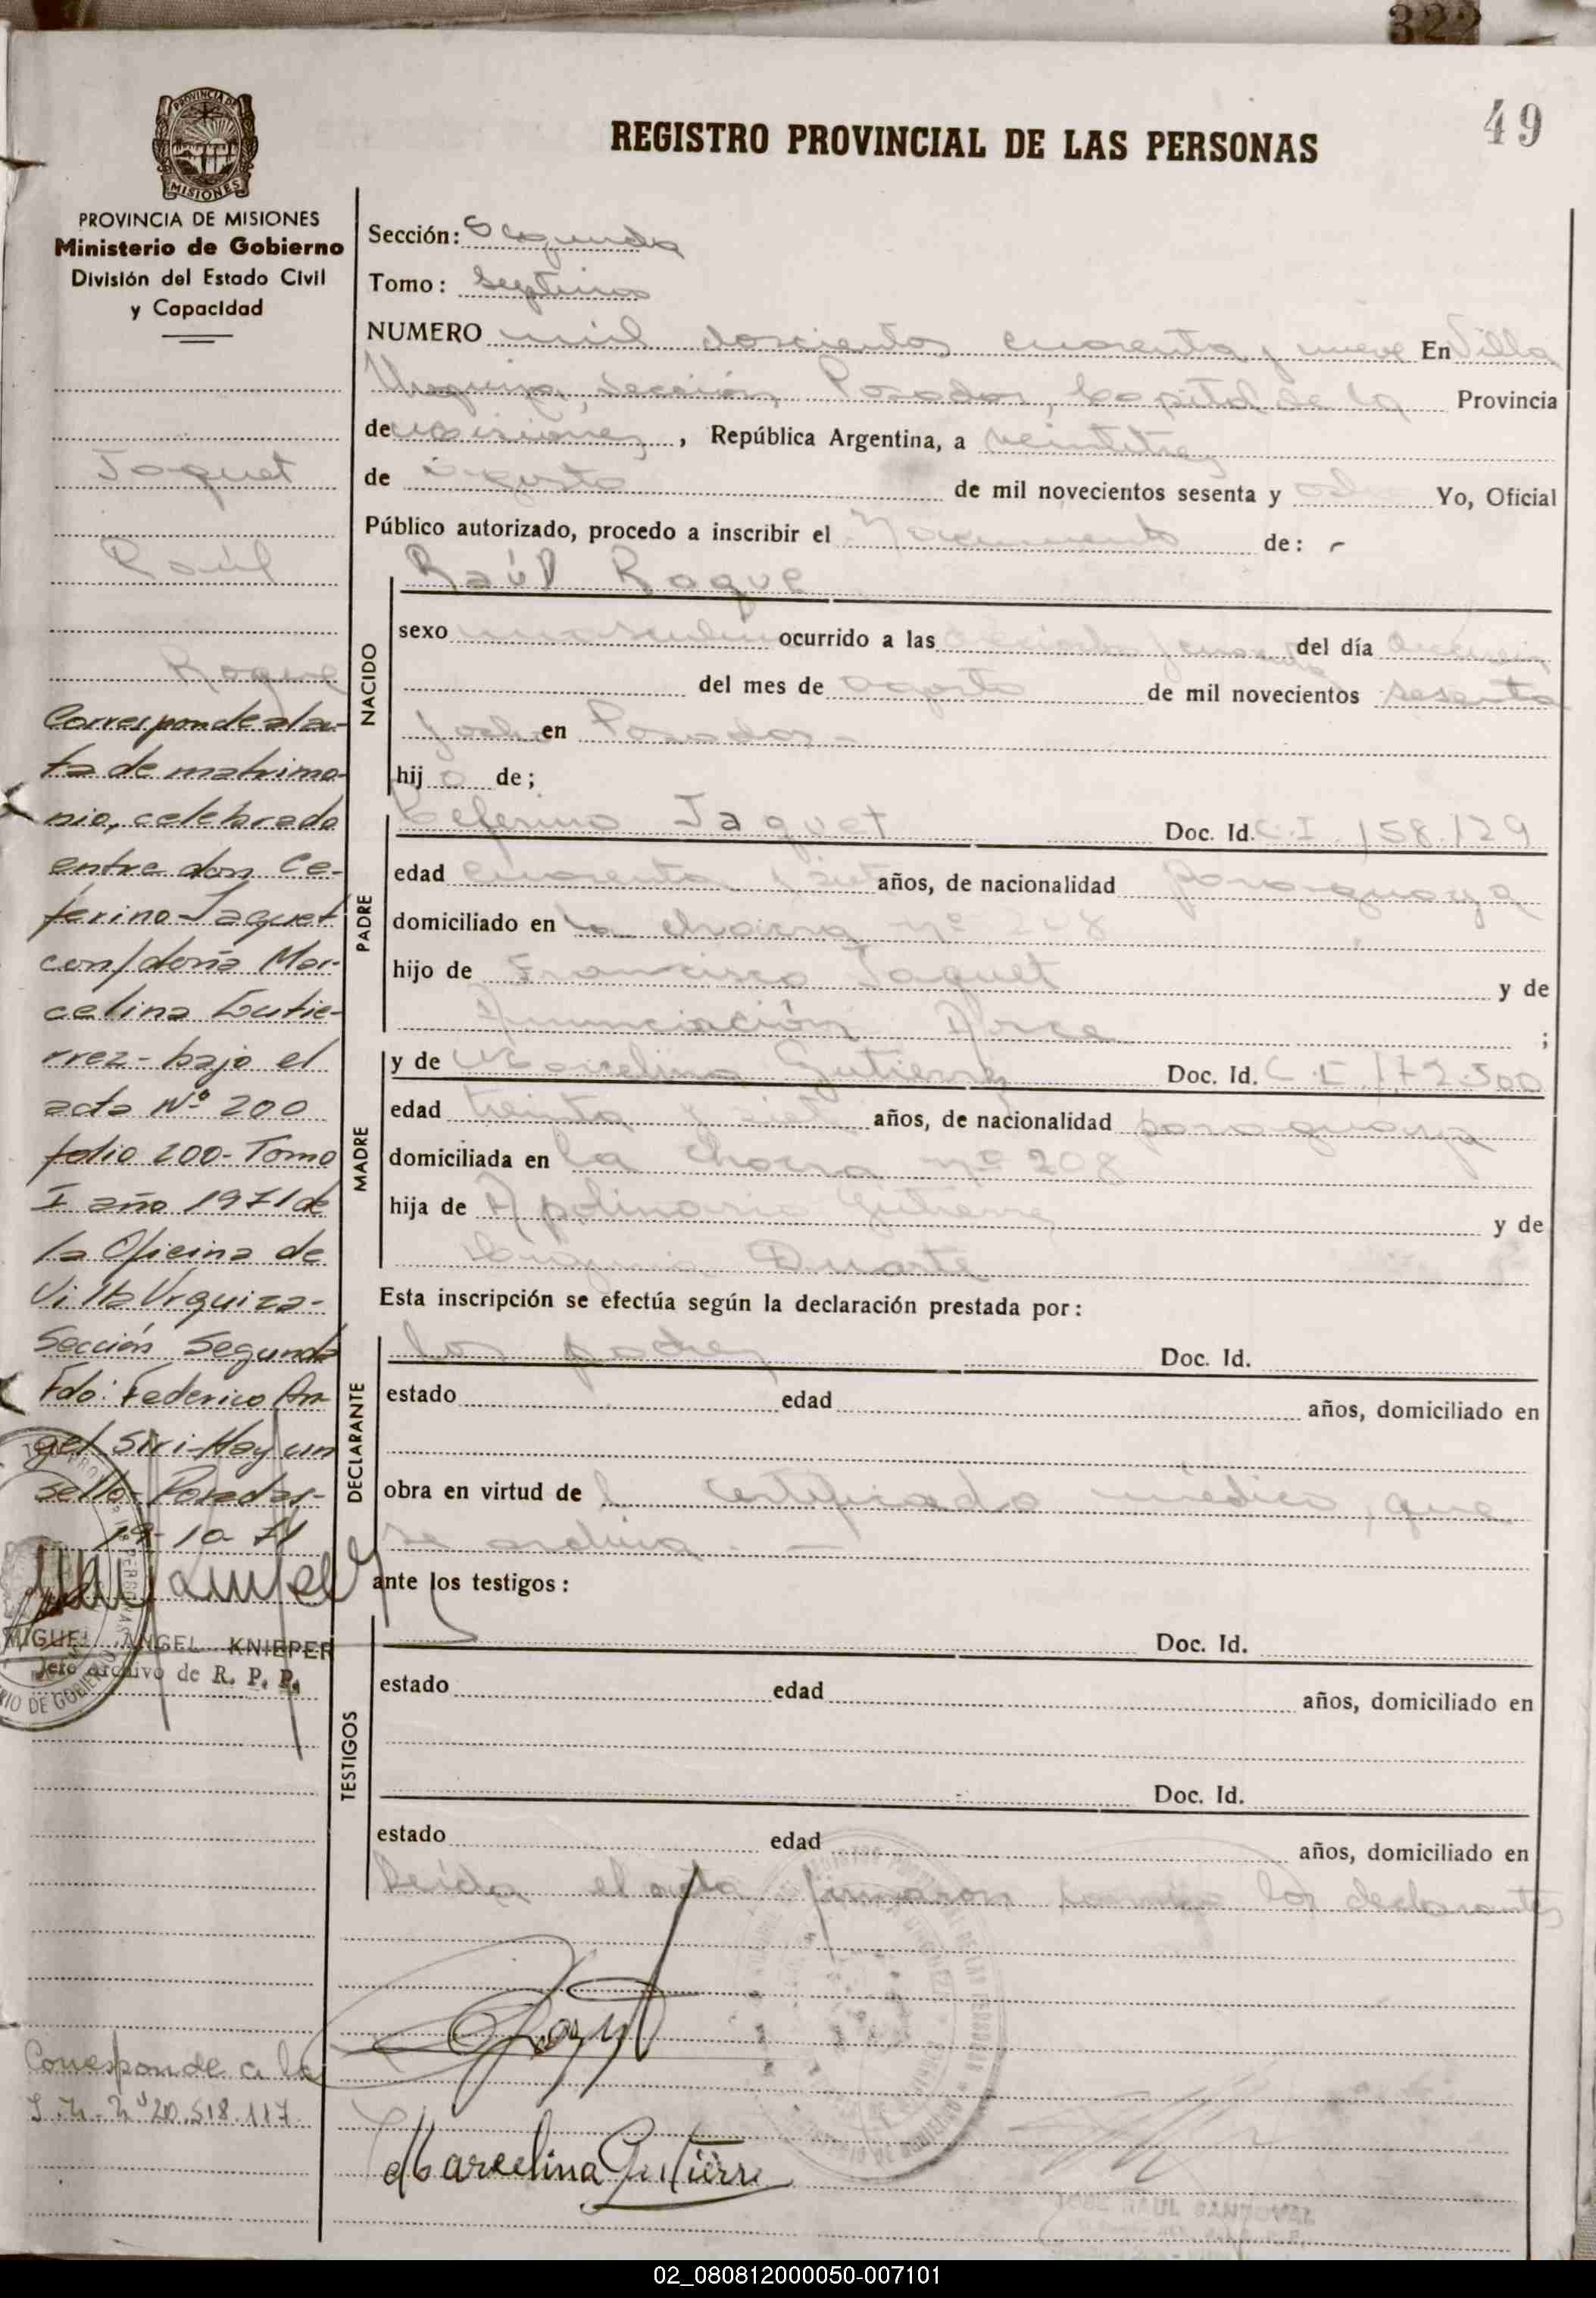 322
49
REGISTRO PROVINCIAL DE LAS PERSONAS
PROVINCIA DE MISIONES
MISIONES
PROVINCIA DE MISIONES
Ministerio de Gobierno
División del Estado Civil
y Capacidad
Jaquet
Raúl
Roque
Corresponde al ac-
ta de matrimo-
nio, celebrado
entre don Ce-
ferino Jaquet
con/doña Mar-
celina Gutie-
rrez - bajo el
acta Nº 200
folio 200 - Tomo
I año 1971 de
la Oficina de
Villa Urquiza -
Sección Segunda
Fdo: Federico An-
gel Siri - Hay un
sello - Posadas -
19-10-71
MIGUEL ANGEL KNIEPER
Jefe archivo de R. P. P.
Corresponde a la
20.518.117
Sección: Segunda
Tomo: Septimo
NUMERO mil doscientos cuarenta y nueve En Villa
Urquiza, sección Posadas, Capital de la Provincia
de Misiones, República Argentina, a veintitres
de agosto de mil novecientos sesenta y ocho Yo, Oficial
Público autorizado, procedo a inscribir el Nacimiento de: -
NACIDO
Raúl Roque
sexo masculino ocurrido a las del día dieciseis
del mes de agosto de mil novecientos sesenta
y ocho en Posadas -
hijo de;
PADRE
Ceferino Jaquet Doc. Id. C.I 158.129
edad cuarenta y siete años, de nacionalidad paraguaya
domiciliado en la chacra nº 208
hijo de Francisco Jaquet y de
Anunciación Arce ;
MADRE
y de Marcelina Gutierrez Doc. Id. C.I 172.500
edad treinta y siete años, de nacionalidad paraguaya
domiciliada en la chacra nº 208
hija de Apolinario Gutierrez y de
Duarte
Esta inscripción se efectúa según la declaración prestada por:
DECLARANTE
los padres Doc. Id.
estado edad años, domiciliado en
obra en virtud de l certificado médico, que
se archiva. -
ante los testigos:
TESTIGOS
Doc. Id.
estado edad años, domiciliado en
Doc. Id.
estado edad años, domiciliado en
Leída el acta firmaron conmigo los declarantes
Marcelina Gutierre
JOSE RAUL SANDOVAL
02_080812000050-007101